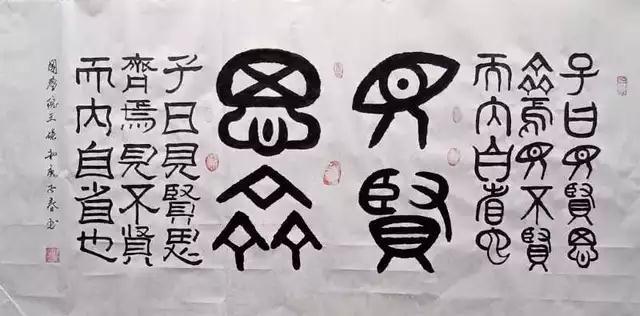 子曰見賢思
齊焉見不賢
而內自省也
見賢
思齊
子曰見賢思
齊焉見不賢
而內自省也
庚子春